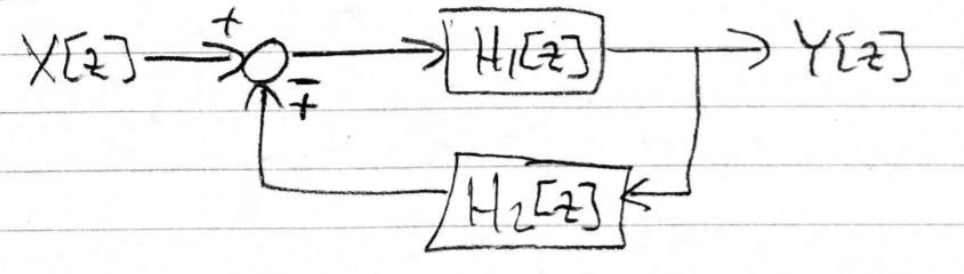 X[z] + H₁[z] Y[z]
∓
H₂[z]